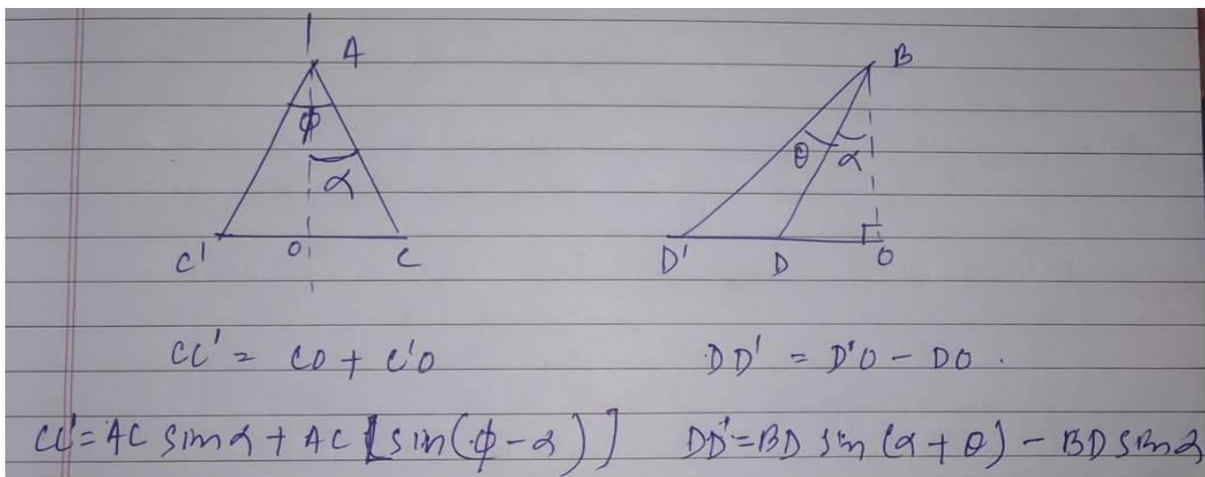 A
B
ϕ
α
θ α
C' O C
D' D O
CC' = CO + C'O
DD' = D'O - DO .
CC' = AC sinα + AC [sin(ϕ-α)]
DD' = BD sin (α + θ) - BD sinα